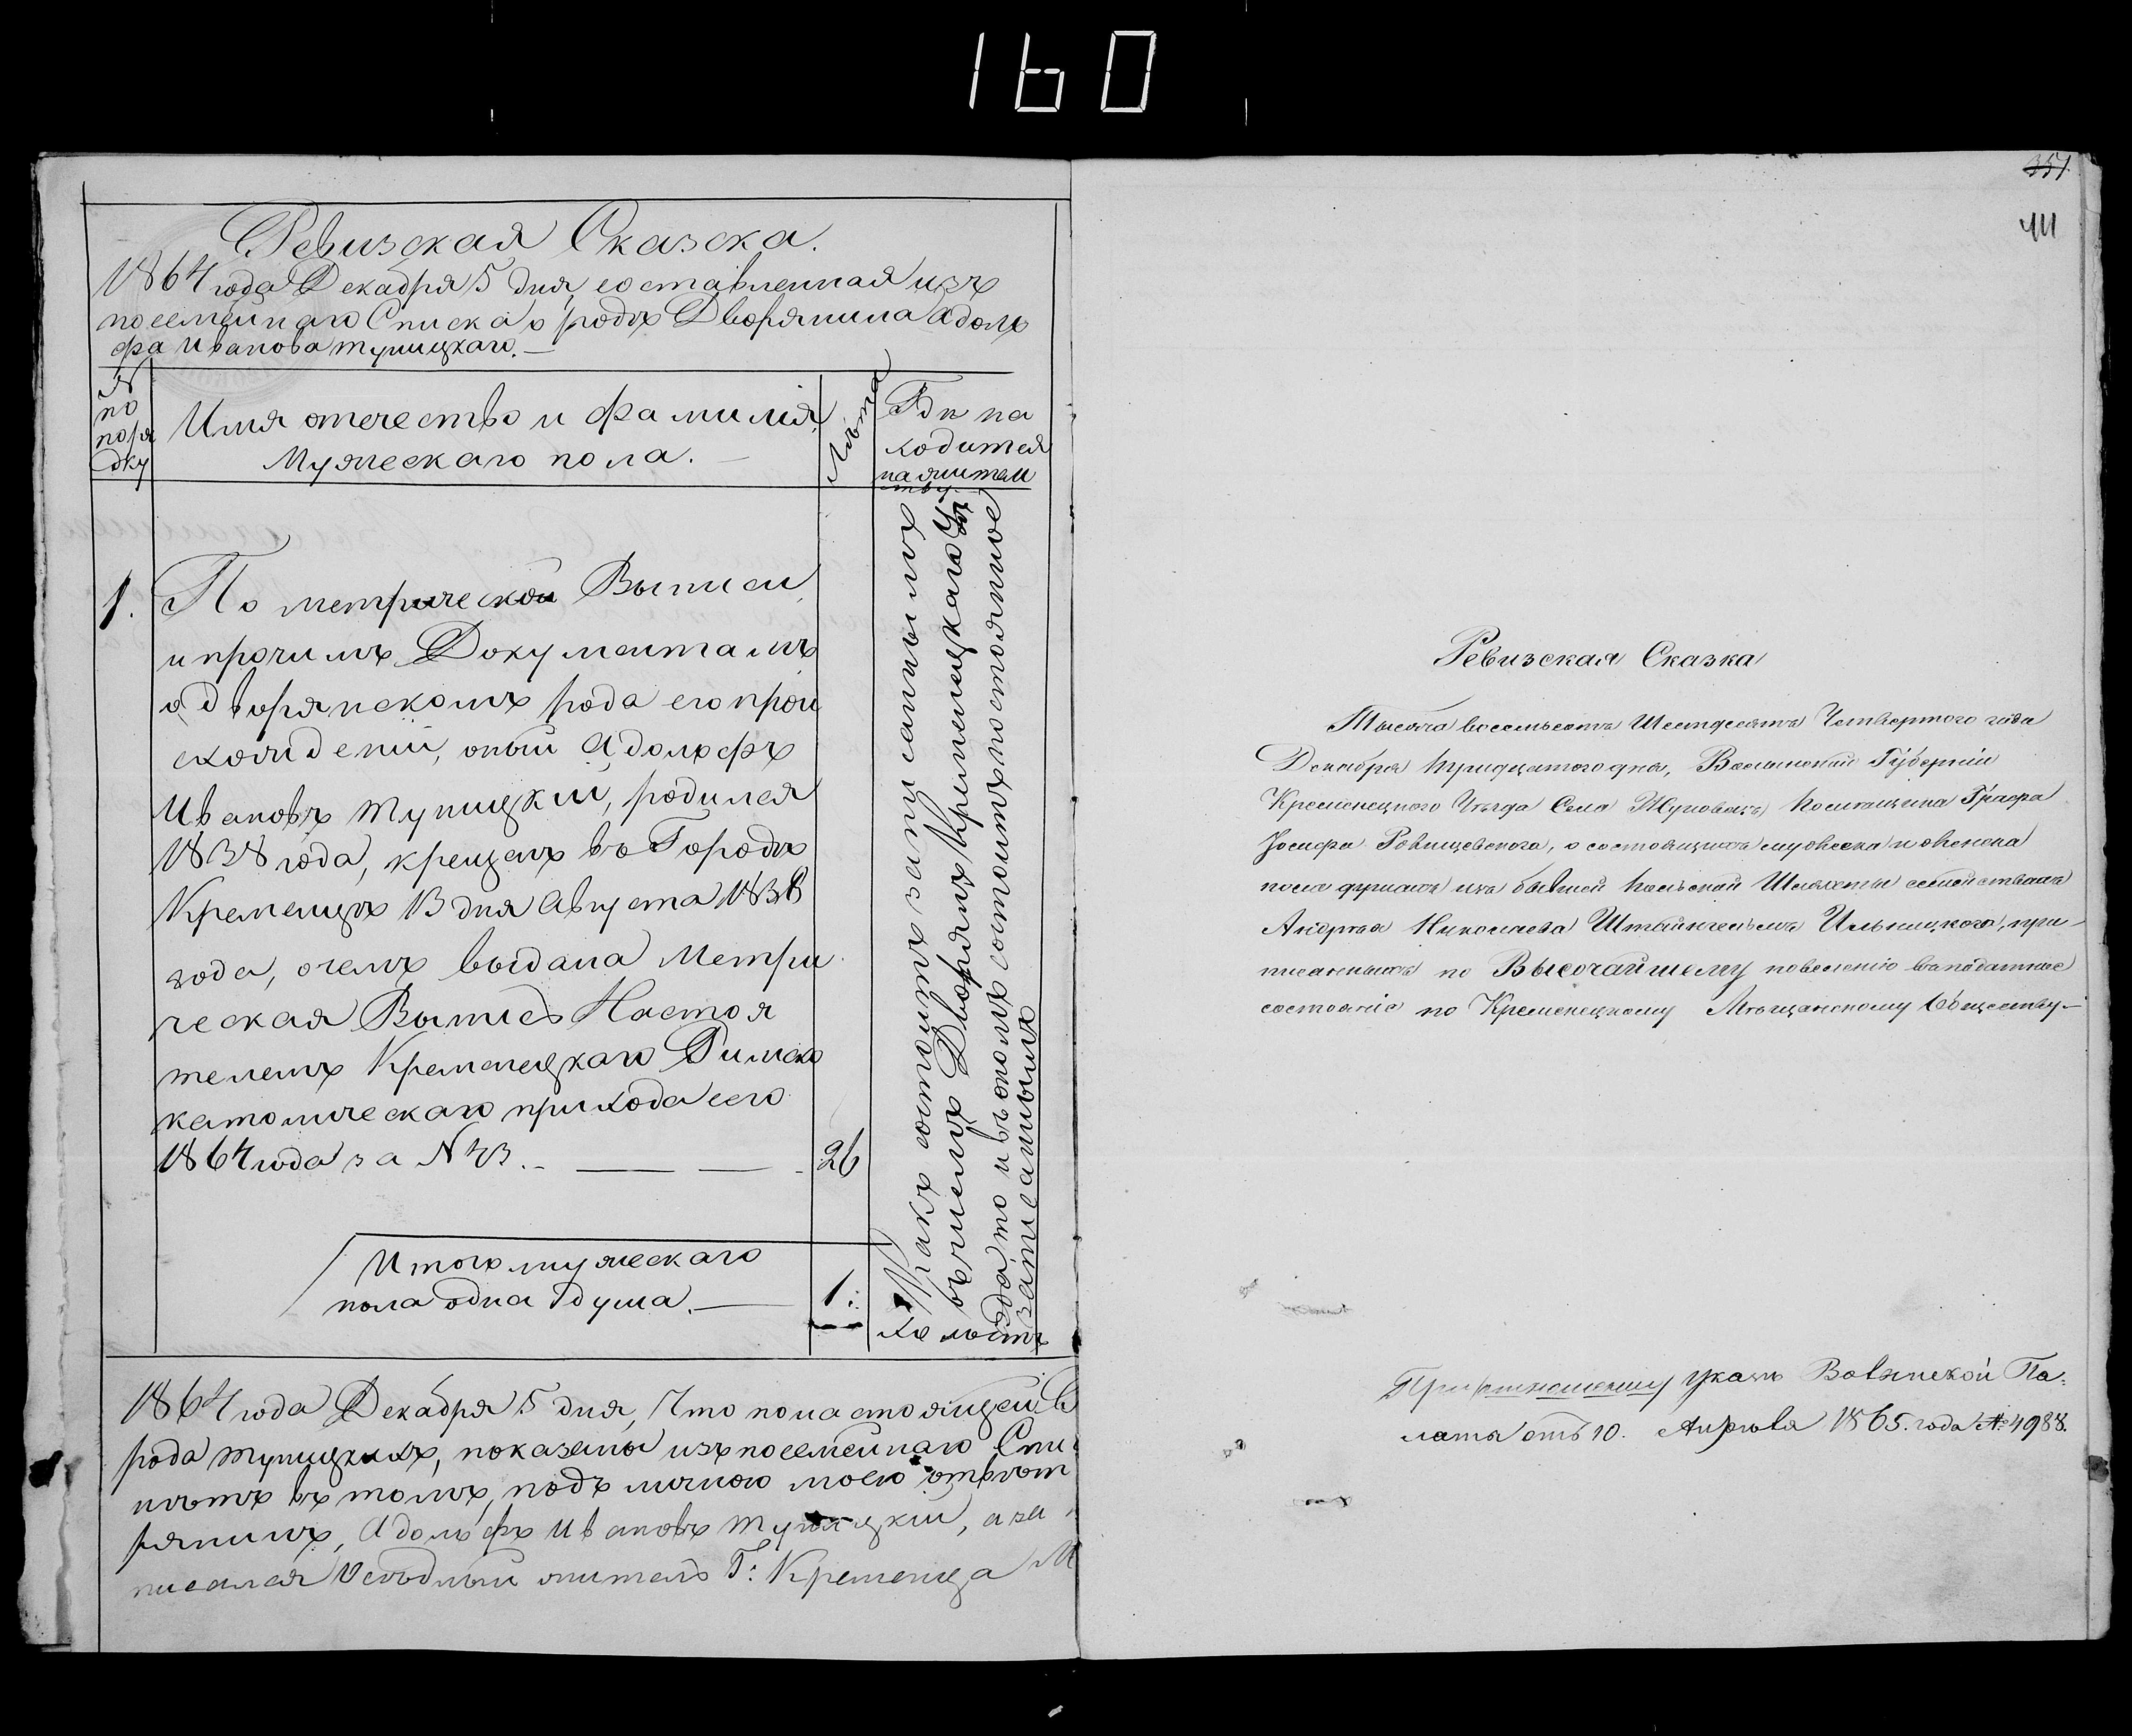 160
Ревизская Сказска.
1864 года Декабря 5 дня, составленная изъ
посемейнаго Списка о родѣ Дворянина Адоль
фа Иванова Тупицкаго.—
№
по
поря
дку
Имя отечество и фамилія
Мужескаго пола. —
Лѣта
Гдѣ на
ходится
на жител
ству
1.
По метрической Выписи
и прочимъ Документамъ
о дворянскомъ рода его прои
схожденіи, оный Адольфъ
Ивановъ Тупицкій, родился
1838 года, крещенъ въ Городѣ
Кременцѣ 13 дня Августа 1838
года, о чемъ выдана Метри
ческая Выпись Настоя
телемъ Кременецкаго Римско
католическаго прихода сего
1864 года за № 43. — — —
26
Какъ состоитъ записаннымъ
въ числѣ Дворянъ Кременецкаго Уѣз
да, то и въ ономъ состоитъ постоянное
записаннымъ
Итого мужескаго
пола одна душа. —
1:
1864 года Декабря 5 дня, Что по настоящей
рода Тупицкихъ, показаны изъ посемейнаго Спи
нѣтъ въ томъ, подъ личною моею отвѣт
рянинъ, Адольфъ Ивановъ Тупицкій, а за
писался Усѣдлый житель Г: Кременца М
351
411
Ревизская Сказка
Тысяча восемьсотъ Шестдесятъ Четвертого года
Декабря тридцатого дня, Волынской Губерніи
Кременецкого Уѣзда Села помѣщика Графа
Іосифа, о состоящихъ мужеска и женска
пола душахъ изъ бывшей польской Шляхты
Андрея Николаева Ильницкого, при-
писанныхъ по Высочайшему повеленію въ податное
состояніе по Кременецкому Мѣщанскому Обществу—
указъ Волынской Па-
латы отъ 10. Апрѣля 1865. года № 4988.